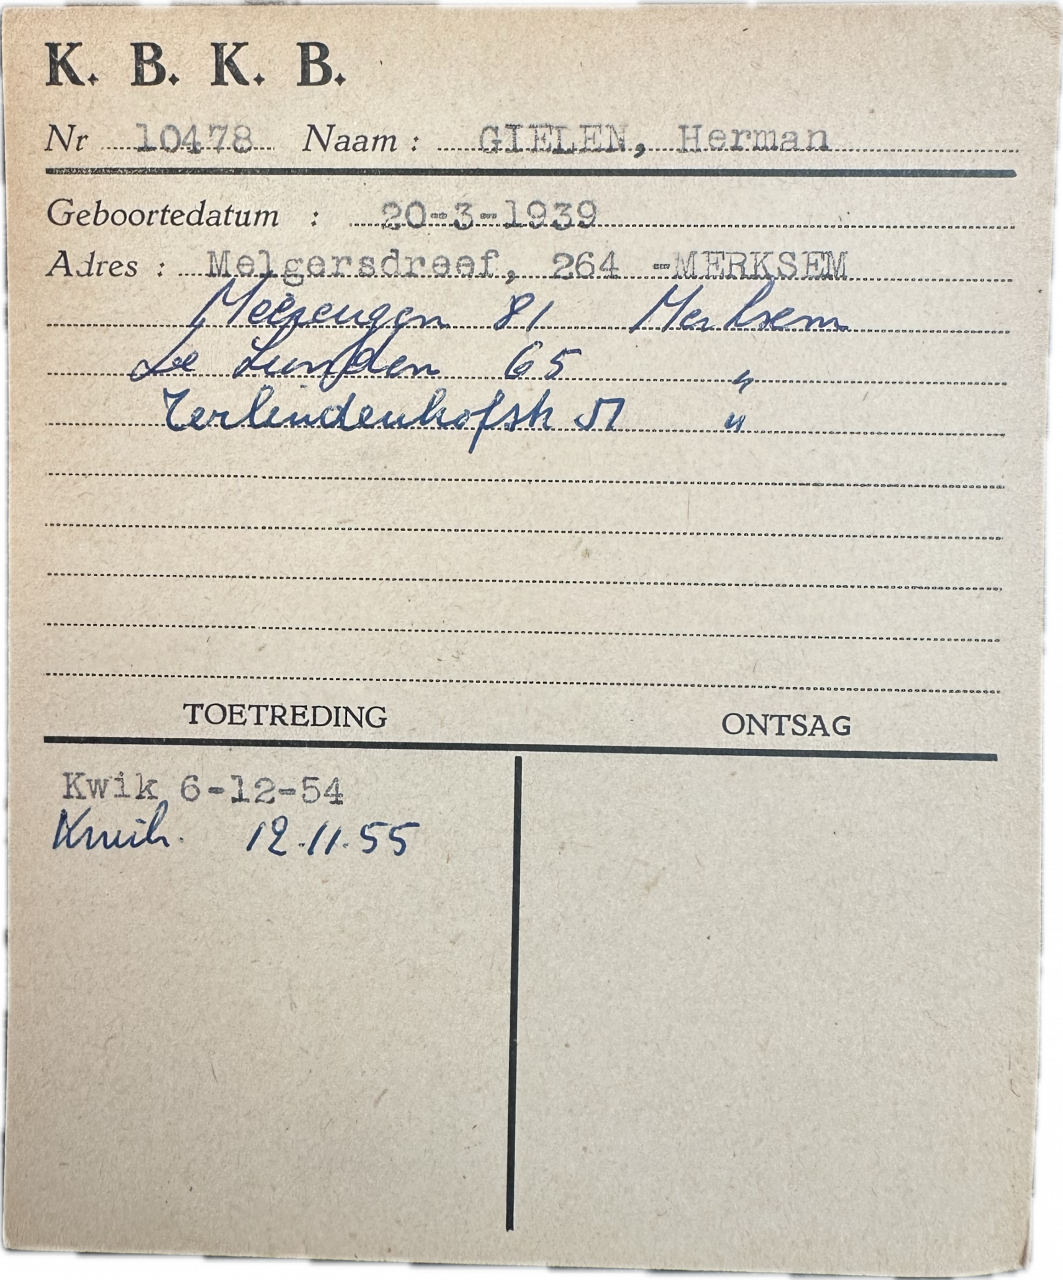 K. B. K. B.
Nr 10478 Naam : GIELEN, Herman
Geboortedatum : 20-3-1939
Adres : Melgersdreef, 264 -MERKSEM
81 Merksem
De 65 "
Terlindenhofstr 51 "
TOETREDING ONTSAG
Kwik 6-12-54
Kwik. 12.11.55